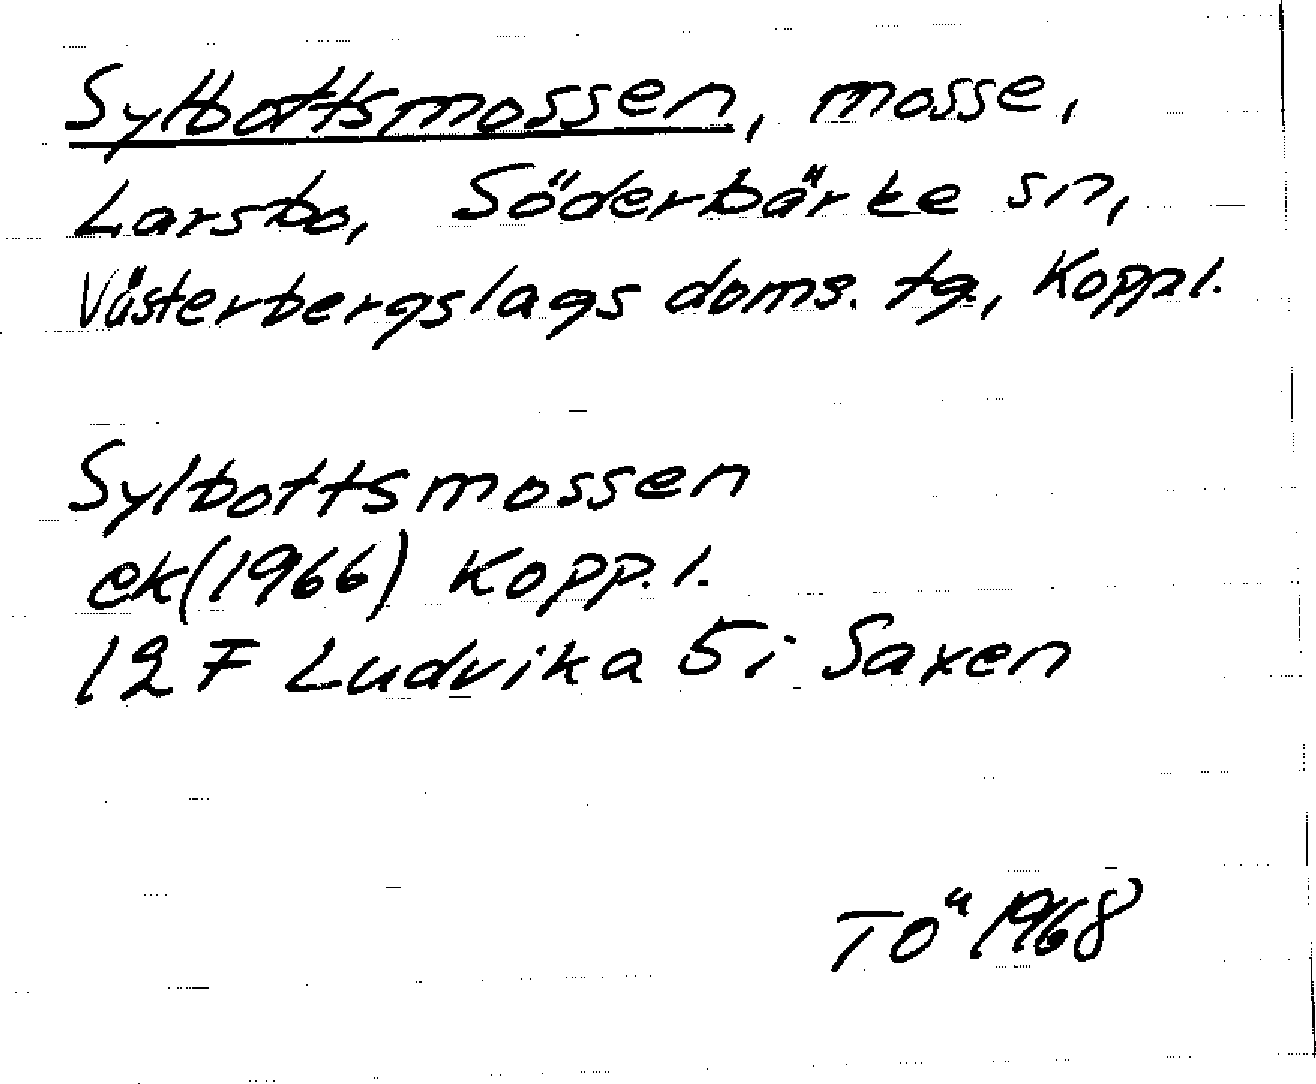 Sylbottsmossen, mosse,
Larsbo, Söderbärke sn,
Västerbergslags doms. tg., Koppl.
Sylbottsmossen
ek(1966) Kopp.l.
12 F Ludvika 5i Saxen
TÖ 1968